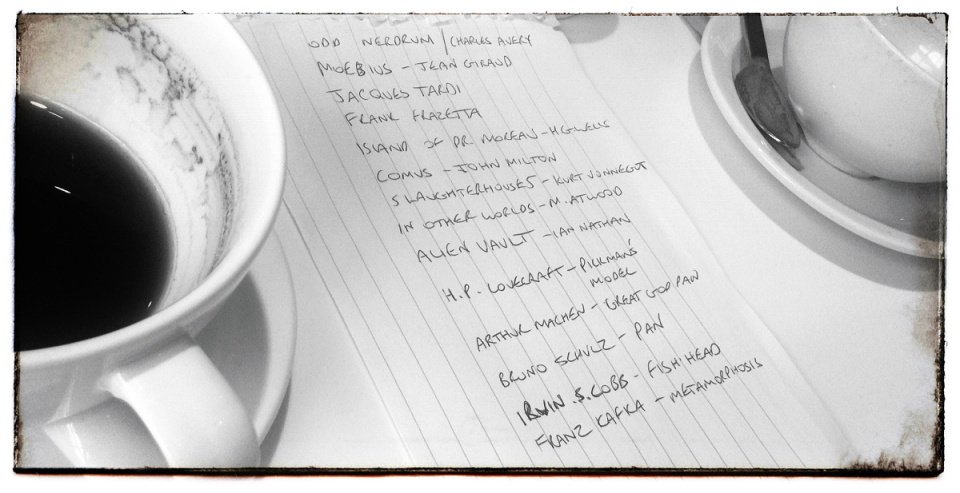 ODD NERDRUM / CHARLES AVERY
MOEBIUS - JEAN GIRAUD
JACQUES TARDI
FRANK FRAZETTA
ISLAND OF DR. MOREAU - H G WELLS
COMUS - JOHN MILTON
SLAUGHTERHOUSE 5 - KURT VONNEGUT
IN OTHER WORLDS - M. ATWOOD
ALIEN VAULT - IAN NATHAN
H.P. LOVECRAFT - PICKMAN'S
MODEL
ARTHUR MACHEN - GREAT GOD PAN
BRUNO SCHULZ - PAN
IRWIN .S. COBB - FISHHEAD
FRANZ KAFKA - METAMORPHOSIS